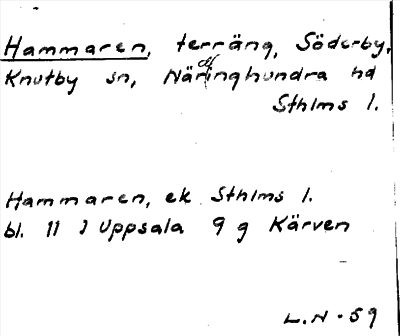 Hammaren, terräng, Söderby,
Knutby sn, Näringhundra hd
Sthlms l.
Hammaren, ek Sthlms l.
bl. 11 J Uppsala 9 g Kärven
L.N - 59